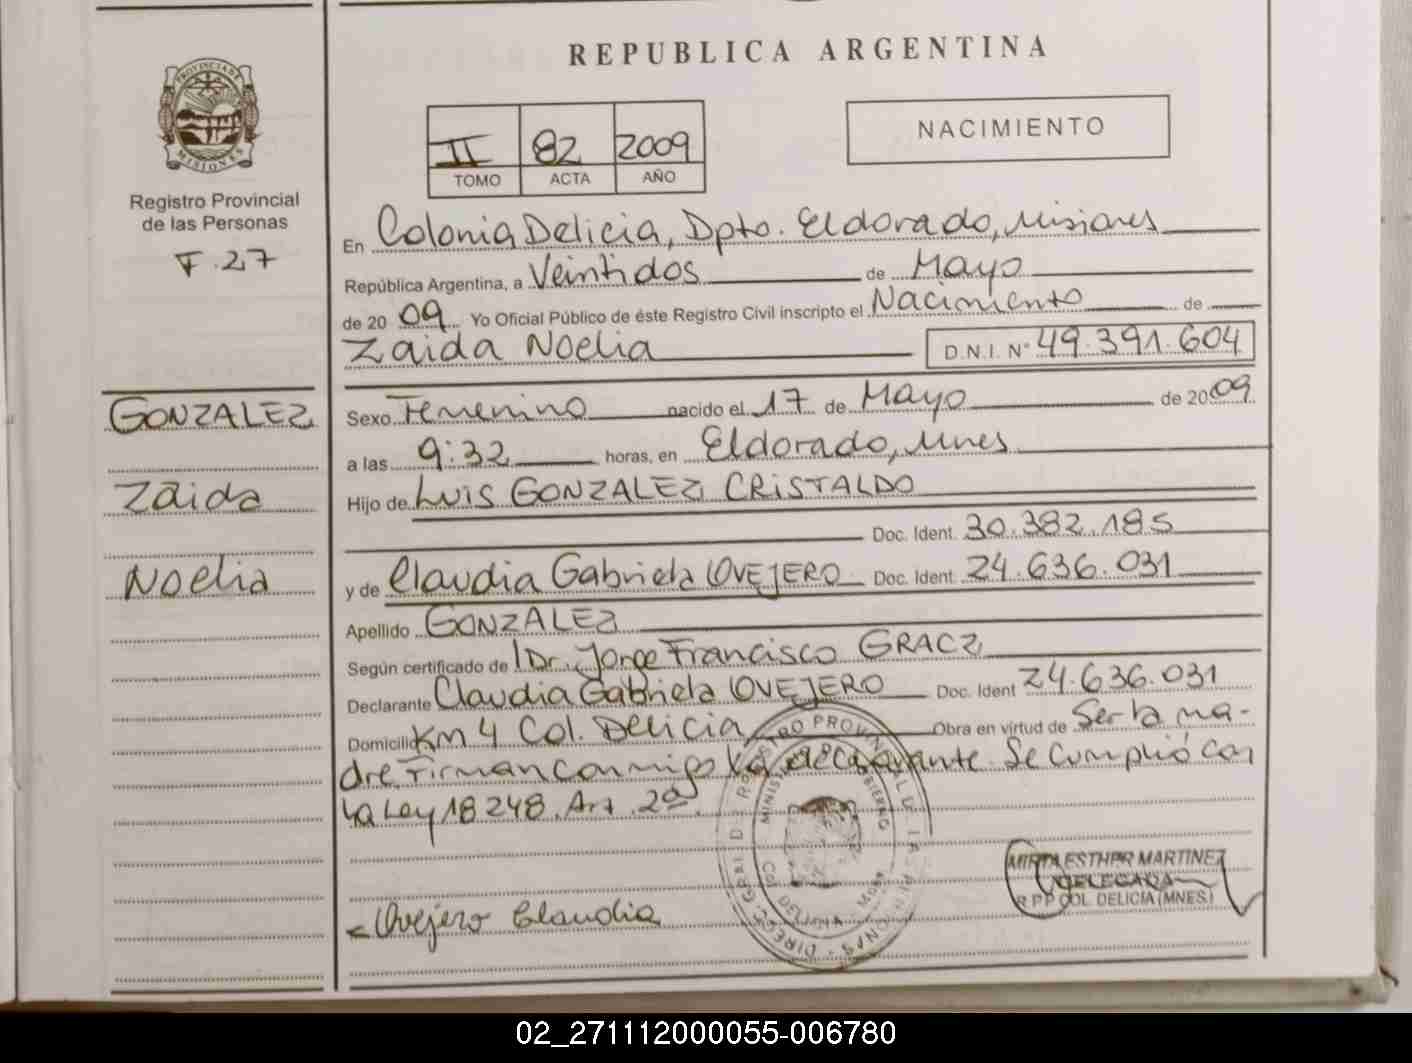 REPUBLICA ARGENTINA
PROVINCIA DE MISIONES
Registro Provincial
de las Personas
F.27
II 82 2009
TOMO ACTA AÑO
NACIMIENTO
En Colonia Delicia, Dpto. Eldorado, Misiones
República Argentina, a Veintidos de Mayo
de 20 09 Yo Oficial Público de éste Registro Civil inscripto el Nacimiento de
Zaida Noelia D.N.I. N° 49.391.604
GONZALEZ
Zaida
Noelia
Sexo Femenino nacido el 17 de Mayo de 2009
a las 9:32 horas, en Eldorado, Mnes
Hijo de LUIS GONZALEZ CRISTALDO
Doc. Ident. 30.382.185
y de Claudia Gabriela OVEJERO Doc. Ident. 24.636.031
Apellido GONZALEZ
Según certificado de Dr. Jorge Francisco GRACZ
Declarante Claudia Gabriela OVEJERO Doc. Ident 24.636.031
Domicilio Km 4 Col. Delicia Obra en virtud de Ser la ma-
dre Firman conmigo la declarante. Se cumplió con
la Ley 18248. Art. 2º.
MIRTA ESTHER MARTINEZ
DELEGADA
R P P COL. DELICIA (MNES)
Ovejero Claudia
02_271112000055-006780